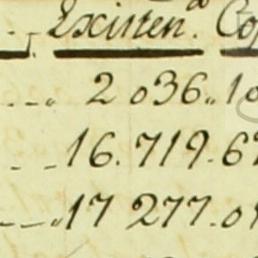 Existen.ª Co
2 036,, 10
16.719.67
17 277.0